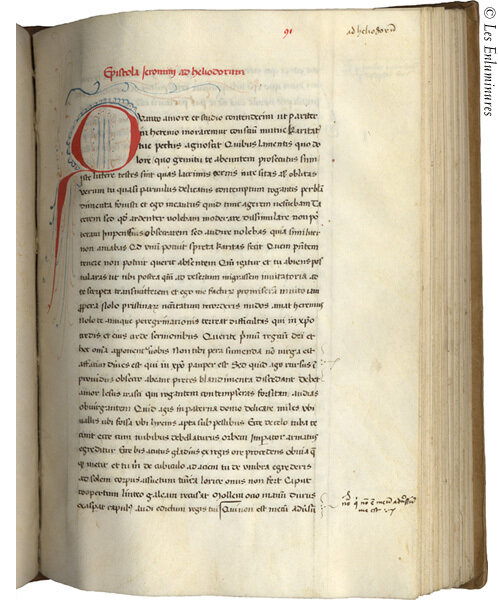 © Les Enluminures
91
ad heliodorū
Epistola ieronimi ad heliodorum
Quanto amore et studio contenderim ut pariter
in heremo moraremur consciū mutue karitatis
tue pectus agnoscit Quibus lamentis quo do
lore quo gemitu te abeuntem prosecutus sum
iste littere testes sunt quas lacrimis
verum tu quasi parvulus delicatus contemptum rogantis
fovisti et ego incautus quid tunc agerem nesciebam Ta
cerem sed qd ardenter volebam moderate dissimulare non po
teram Impensius obsecrarem sed audire nolebas quia similiter
non amabas Qd unū potuit spreta karitas fecit Quem
tenere non potuit querit absentem Qm igitur et tu abiens pos
tularas ut tibi postea qm ad desertum migrassem invitatoria ad
te scripta transmitterem et ego me facturū promiseram invito iam
pristinarum necessitatum recorderis nudos amat heremus
Nolo te antique peregrinationis terreat difficultas qui in xpo
credis et eius crede sermonibus Querite primū regnū dei et
hec omīa apponent vobis Non tibi pera sumenda nō virga est
affatim dives est qui in xpo pauper est Sed quid ago rursus
providus obsecro abeant preces blandimenta discedant debet
amor irasci qui rogantem contempseras forsitan audias
obiurgantem Quid agis in paterna domo delicate miles ubi
vallus ubi fossa ubi hyems apta sub pellibus Ecce de celo tuba
canit ecce cum nubibus debellaturus orbem Imperator armatus
egreditur Ecce bis acutus gladius ex regis ore procedens obvia
metit et tu m de cubiculo ad aciem tu de umbra egrederis
ad solem corpus assuetum tunica lorice onus non fert Caput
coopertum linteo galeam recusat Mollem otio manū durus
exasperat capulus audi edictum regis tui Qui non est mecū